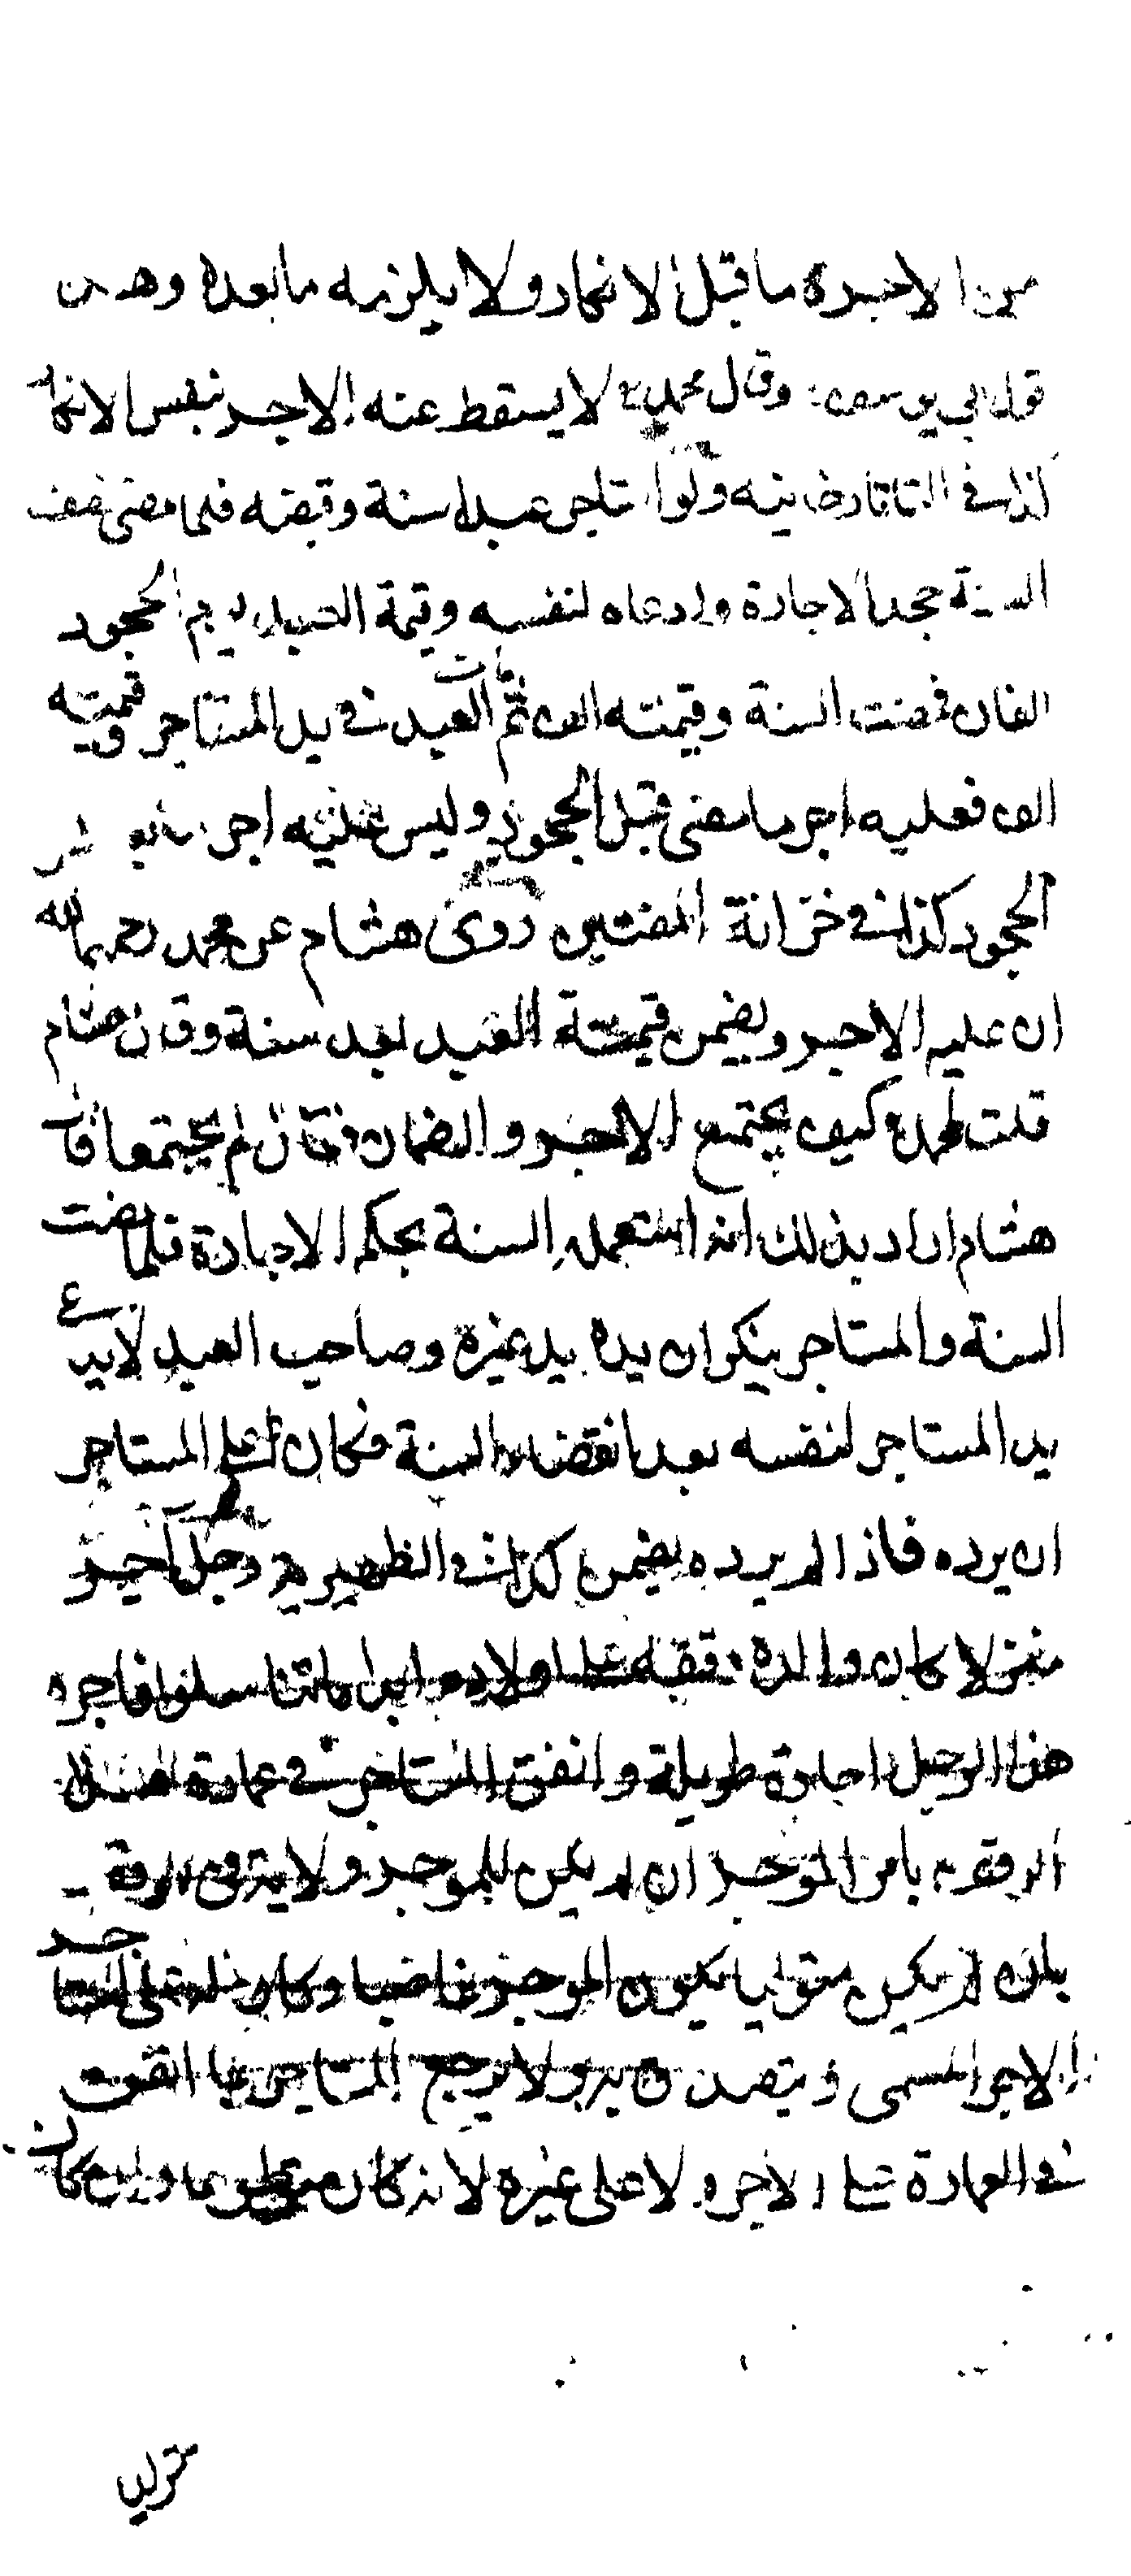 من الاجرة ما قبل الانكار ولا يلزمه ما بعده وهذا
قول ابي يوسف وقال محمد لا يسقط عنه الاجر بنفس الانكار
كذا في التاتارخانيه ولو استاجر عبدا سنة وقبضه فلما مضى نصف
السنة جحد الاجارة وادعاه لنفسه وقيمة العبد يوم الجحود
الفان فمضت السنة وقيمته الف ثم مات العبد في يد المستاجر وقيمته
الف فعليه اجر ما مضى قبل الجحود وليس عليه اجر ما بعد
الجحود كذا في خزانة المفتيين روى هشام عن محمد رحمهما الله
ان عليه الاجر ويضمن قيمة العبد بعد سنة وقال هشام
قلت لمحمد كيف يجتمع الاجر والضمان فقال لم يجتمعا قال
هشام اراد بذلك انه استعمله السنة بحكم الاجارة فلما مضت
السنة والمستاجر ينكر ان يده يد غيره وصاحب العبد لا يدعي
يد المستاجر لنفسه بعد انقضاء السنة فكان على المستاجر
ان يرده فاذا لم يرده يضمن كذا في الظهيرية رجل آجر
منزلا كان والده وقفه على اولاده ابدا ما تناسلوا فاجره
هذا الرجل اجارة طويلة وانفق المستاجر في عمارة المنزل
الوقف بامر الموجر ان لم يكن للموجر ولاية في الوقف
بان لم يكن متوليا يكون الموجر غاصبا وكان له على المستاجر
الاجر المسمى ويتصدق به ولا يرجع المستاجر بما انفق
في العمارة على الاجر ولا على غيره لانه كان متطوعا وان كان
متوليا